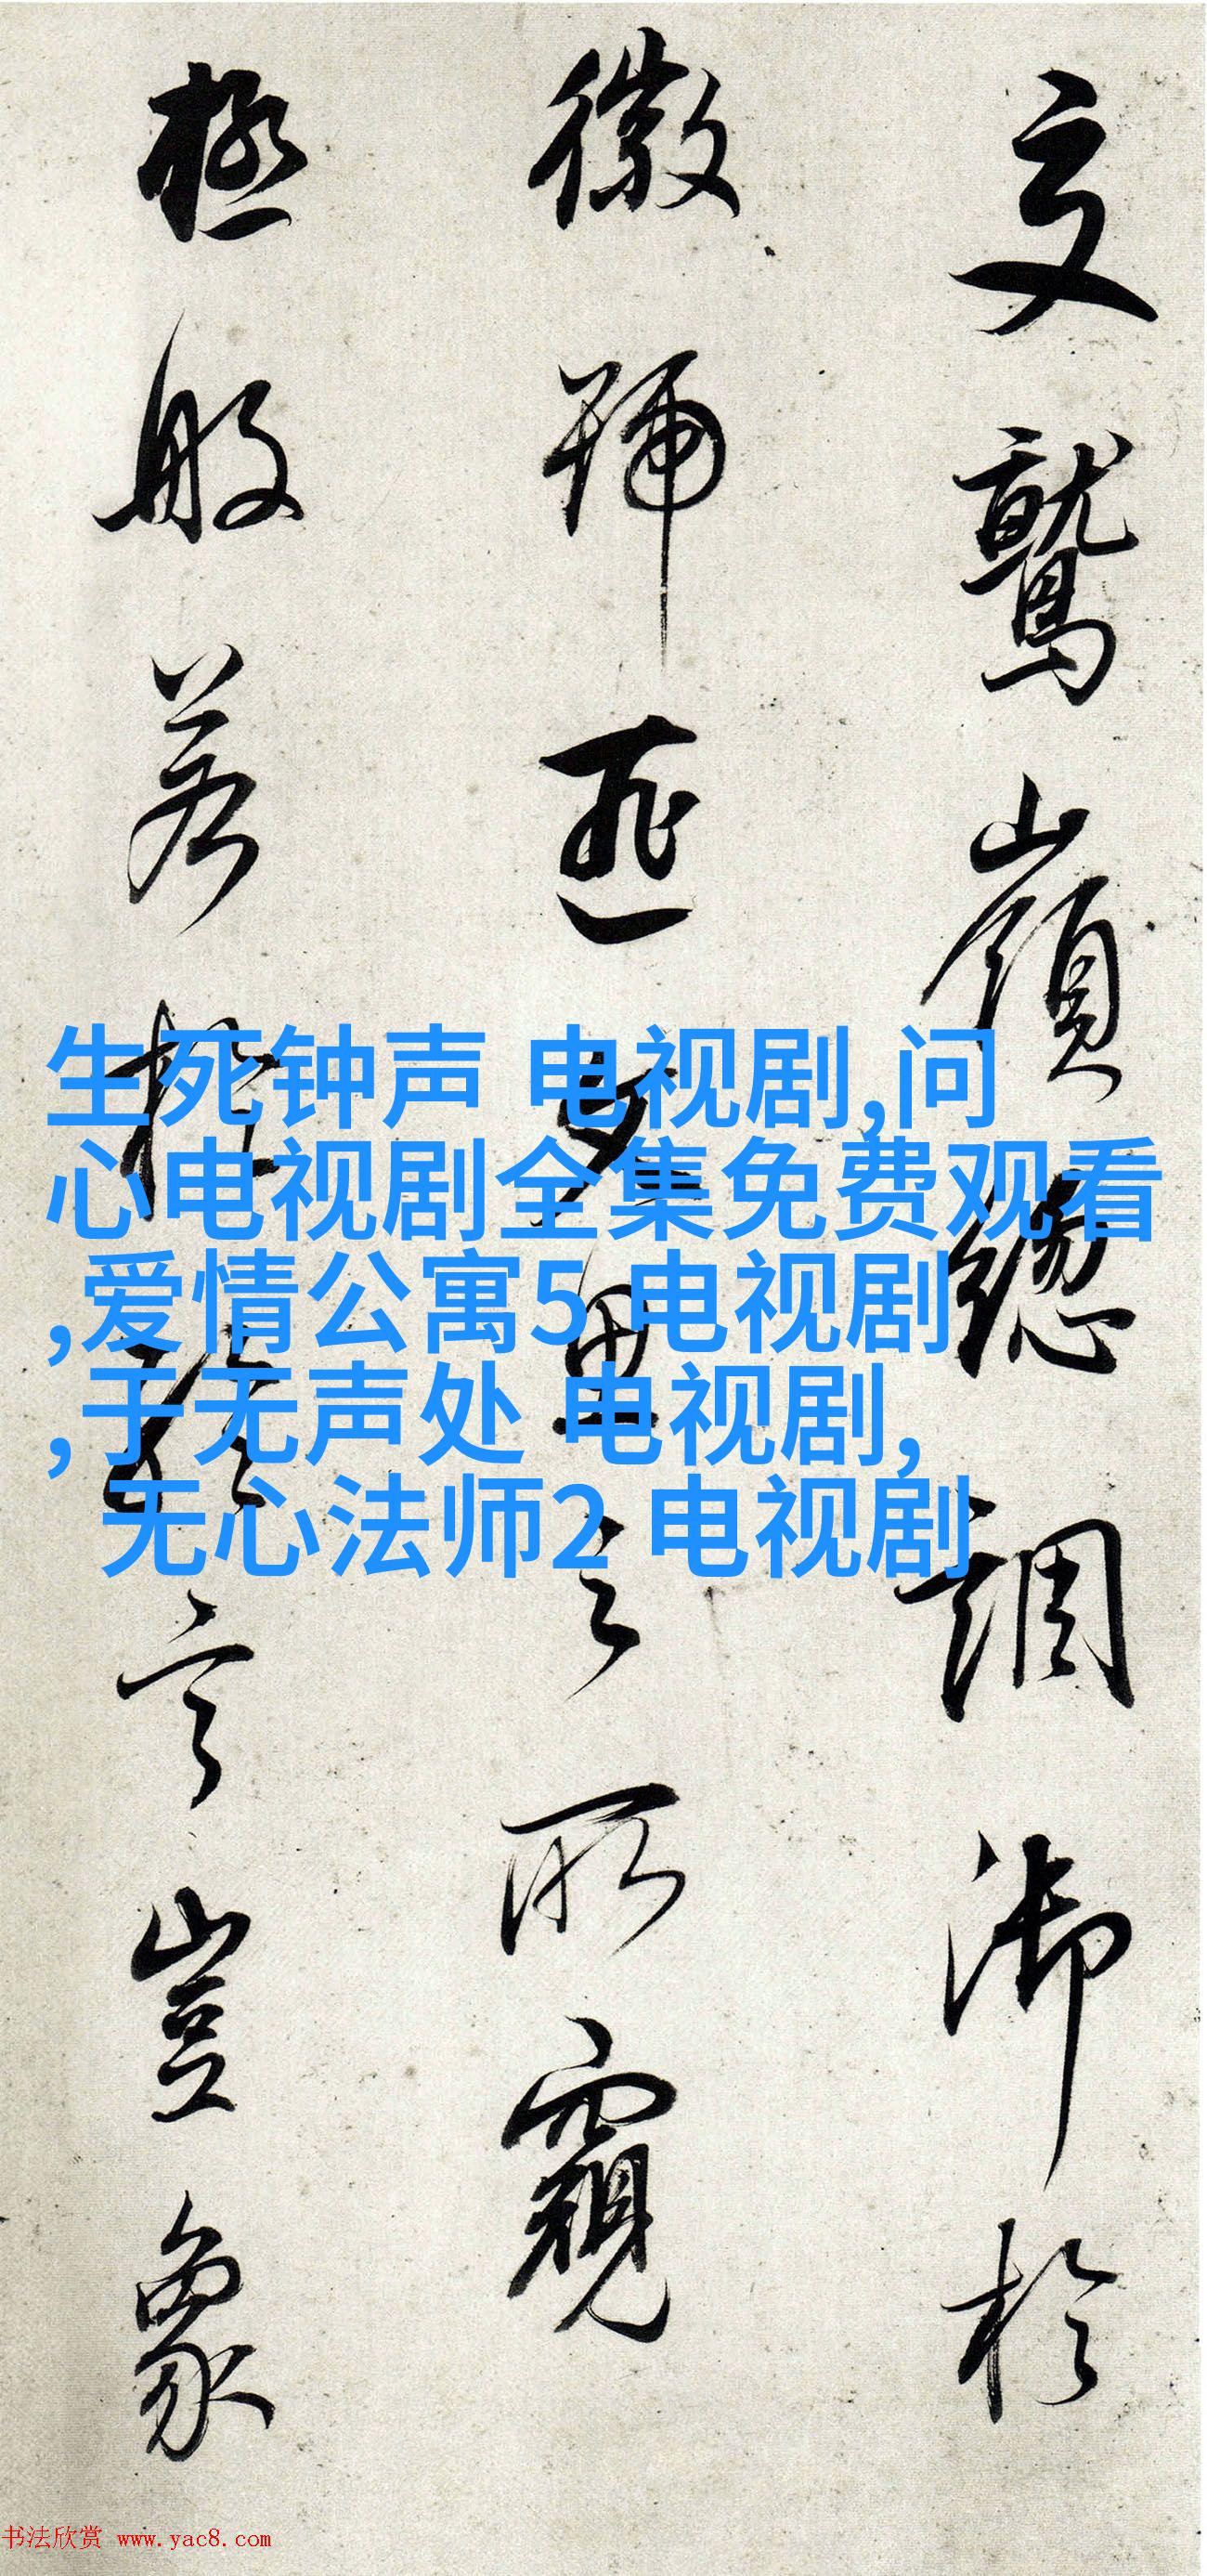 文鷲嶺總調御於
徽號匪名器之所窺
極般若於後言豈象
生死钟声 电视剧,问
心电视剧全集免费观看
,爱情公寓5 电视剧
,于无声处 电视剧,
无心法师2 电视剧
书法欣赏 www.yac8.com